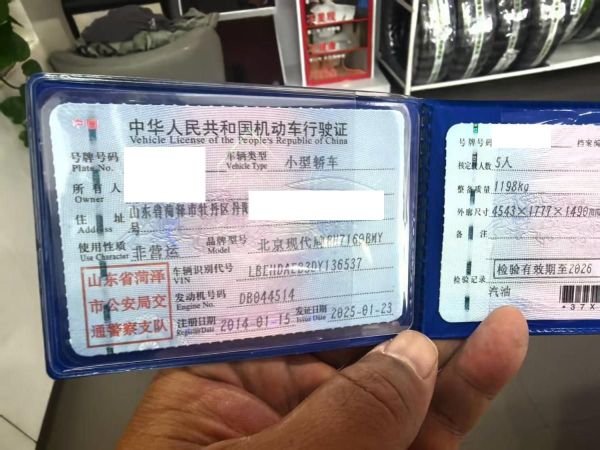 中华人民共和国机动车行驶证
Vehicle License of the People's Republic of China
号牌号码
Plate No.
车辆类型 小型轿车
Vehicle Type
所有人
Owner
住址 山东省菏泽市牡丹区丹阳
使用性质 非营运
Use Character
品牌型号 北京现代牌BH7169BMY
Model
车辆识别代号
VIN
发动机号码 DB044514
Engine No.
注册日期 2014-01-15
Register Date
发证日期 2025-01-23
Issue Date
山东省菏泽
市公安局交
通警察支队
号牌号码
档案编
核定载人数 5人
整备质量 1198kg
外廓尺寸 4543×1777×1490
备注
检验记录 检验有效期至2026
汽油